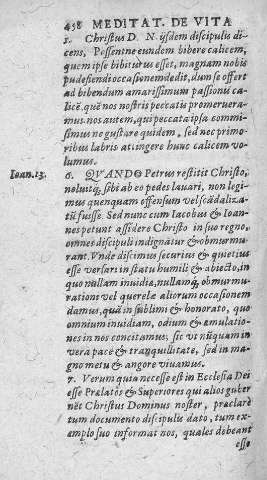 438 MEDITAT. DE VITA
5. Christus D. N. ijsdem discipulis di-
cens, Possentne eundem bibere calicem,
quem ipse bibiturus esset, magnam nobis
pudefiendi occasionem dedit, dum se offert
ad bibendum amarissimum passionū cali-
cē, quē nos nostris peccatis promeruera-
mus nos autem, qui peccata ipsa commi-
simus ne gustare quidem, sed nec primo-
ribus labris attingere hunc calicem vo-
lumus.
Ioan. 13. 6. QVANDO Petrus restitit Christo,
noluitq́; sibi ab eo pedes lauari, non legi-
mus quenquam offensum vel scādaliza-
tū fuisse. Sed nunc cum Iacobus & Ioan-
nes petunt assidere Christo in suo regno,
omnes discipuli indignātur & obmurmu-
rant. Vnde discimus securius & quietius
esse versari in statu humili & abiecto, in
quo nullam inuidia, nullamq́; obmurmu-
rationis vel querelæ aliorum occasionem
damus, quā in sublimi & honorato, quo
omnium inuidiam, odium & æmulatio-
nes in nos concitamus, sic vt nūquam in
vera pace & tranquillitate, sed in mag-
no metu & angore viuamus.
7. Verum quia necesse est in Ecclesia Dei
esse Prælatos & Superiores qui alios guber
nēt Christus Dominus noster, præclarū
tum documento discipulis dato, tum ex-
emplo suo informat nos, quales debeant
esse